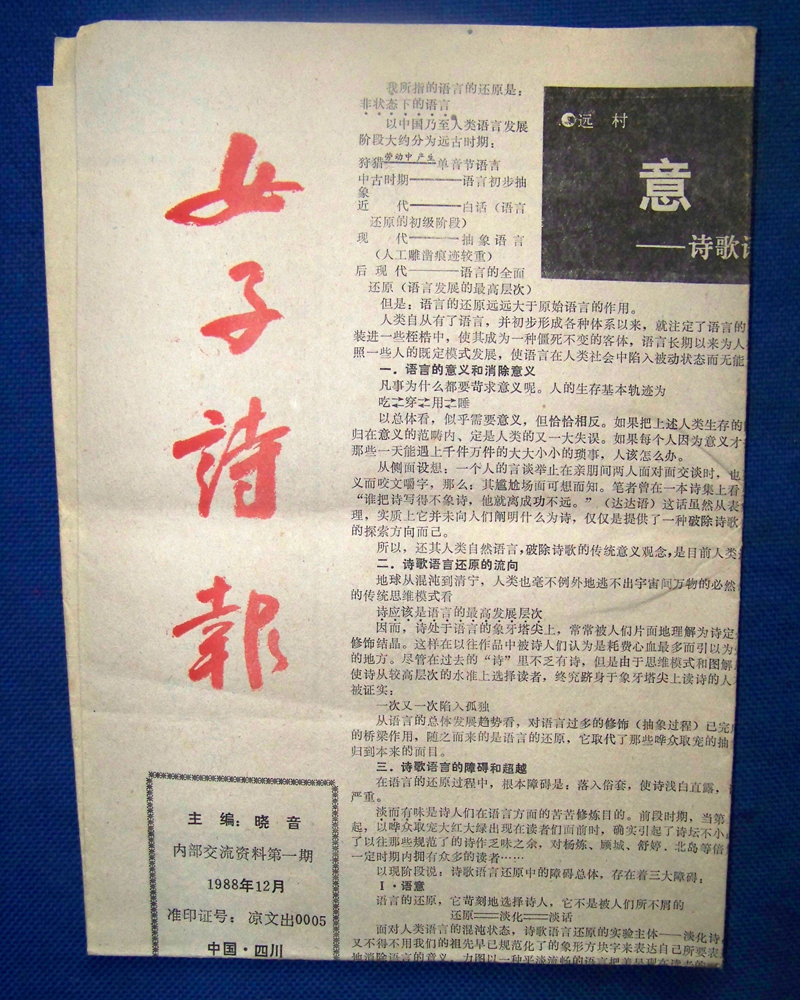 女子詩報
主编：晓音
内部交流资料第一期
1988年12月
准印证号：凉文出0005
中国·四川
远 村
意
——诗歌语
我所指的语言的还原是：
非状态下的语言
以中国乃至人类语言发展
阶段大约分为远古时期：
狩猎——劳动中产生——单音节语言
中古时期————语言初步抽
象
近 代————白话（语言
还原的初级阶段）
现 代————抽象语言
（人工雕凿痕迹较重）
后现代————语言的全面
还原（语言发展的最高层次）
但是：语言的还原远远大于原始语言的作用。
人类自从有了语言，并初步形成各种体系以来，就注定了语言的
装进一些桎梏中，使其成为一种僵死不变的客体，语言长期以来为人
照一些人的既定模式发展，使语言在人类社会中陷入被动状态而无能
一．语言的意义和消除意义
凡事为什么都要苛求意义呢。人的生存基本轨迹为
吃⇄穿⇄用⇄睡
以总体看，似乎需要意义，但恰恰相反。如果把上述人类生存的
归在意义的范畴内、定是人类的又一大失误。如果每个人因为意义才
那些一天能遇上千件万件的大大小小的琐事，人该怎么办。
从侧面设想：一个人的言谈举止在亲朋间两人面对面交谈时，也
义而咬文嚼字，那么：其尴尬场面可想而知。笔者曾在一本诗集上看
“谁把诗写得不象诗，他就离成功不远。”（达达语）这话虽然从表
理，实质上它并未向人们阐明什么为诗，仅仅是提供了一种破除诗歌
的探索方向而己。
所以，还其人类自然语言，破除诗歌的传统意义观念，是目前人类
二．诗歌语言还原的流向
地球从混沌到清宁，人类也毫不例外地逃不出宇宙间万物的必然
的传统思维模式看
诗应该是语言的最高发展层次
因而，诗处于语言的象牙塔尖上，常常被人们片面地理解为诗定
修饰结晶。这样在以往作品中被诗人们认为是耗费心血最多而引以为
的地方。尽管在过去的“诗”里不乏有诗，但是由于思维模式和图解
使诗从较高层次的水准上选择读者，终究跻身于象牙塔尖上读诗的人
被证实：
一次又一次陷入孤独
从语言的总体发展趋势看，对语言过多的修饰（抽象过程）已完
的桥梁作用，随之而来的是语言的还原，它取代了那些哗众取宠的抽
归到本来的面目。
三．诗歌语言的障碍和超越
在语言的还原过程中，根本障碍是：落入俗套，使诗浅白直露，
严重。
淡而有味是诗人们在语言方面的苦苦修炼目的。前段时期，当第
起，以哗众取宠大红大绿出现在读者们面前时，确实引起了诗坛不小
了以往那些规范了的诗作乏味之余，对杨炼、顾城、舒婷、北岛等倍
一定时期内拥有众多的读者……
以现阶段说：诗歌语言还原中的障碍总体，存在着三大障碍：
Ⅰ·语意
语言的还原，它苛刻地选择诗人，它不是被人们所不屑的
还原══淡化══淡话
面对人类语言的混沌状态，诗歌语言还原的实验主体——淡化诗
又不得不用我们的祖先早已规范化了的象形方块字来表达自己所要表
地消除语言的意义，力图以一种平淡流畅的语言把美呈现在读者的